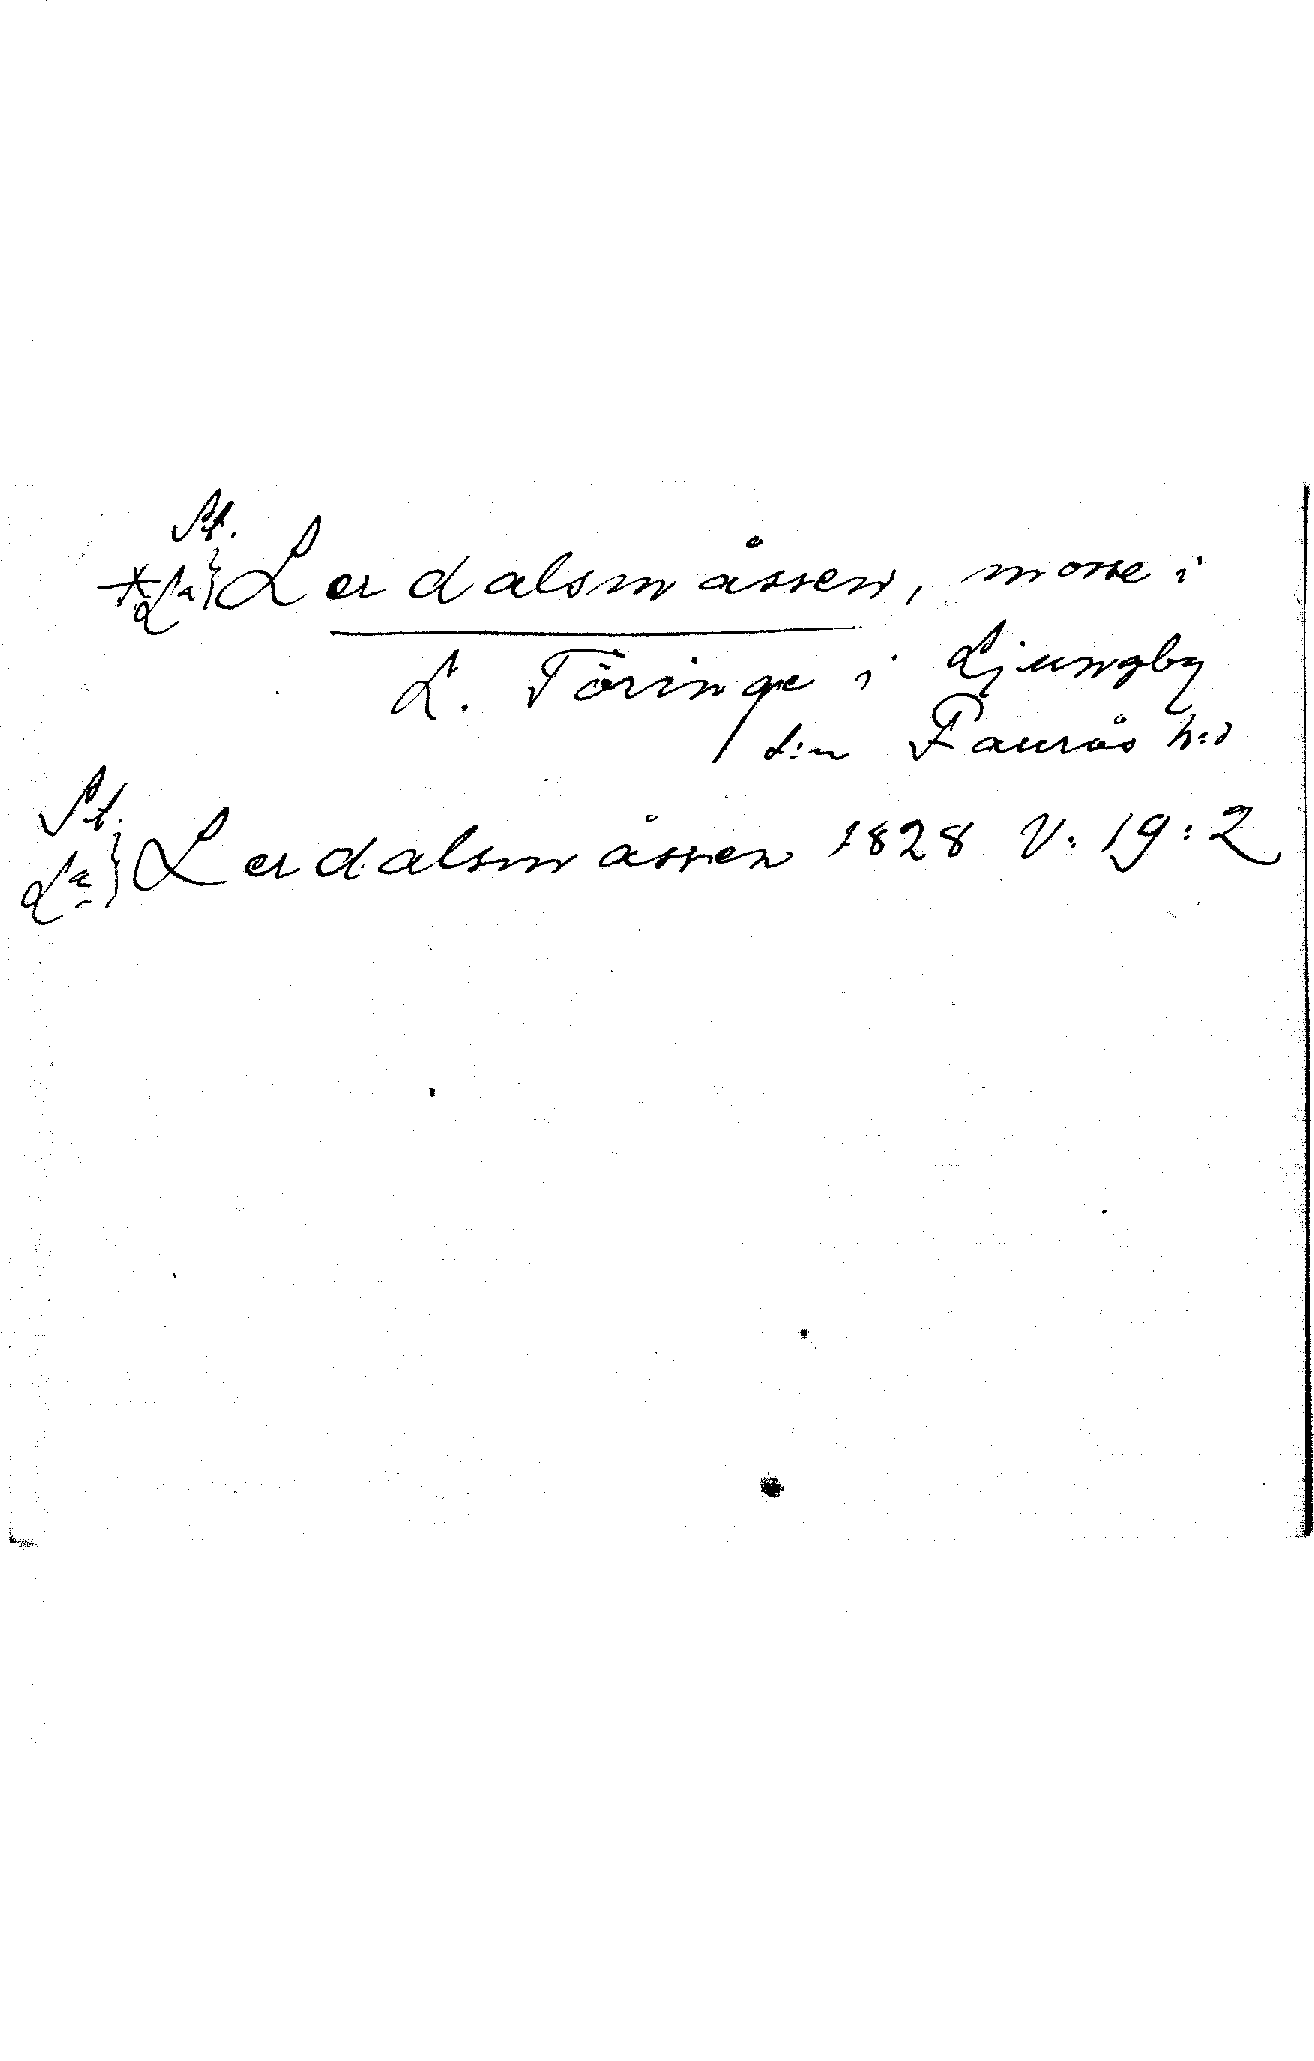 St.
*La } Lerdalsmåssen, mosse i
L. Töringe i Ljungby
s:n Faurås h:d
St.
La } Lerdalsmåssen 1828 V: 19:2